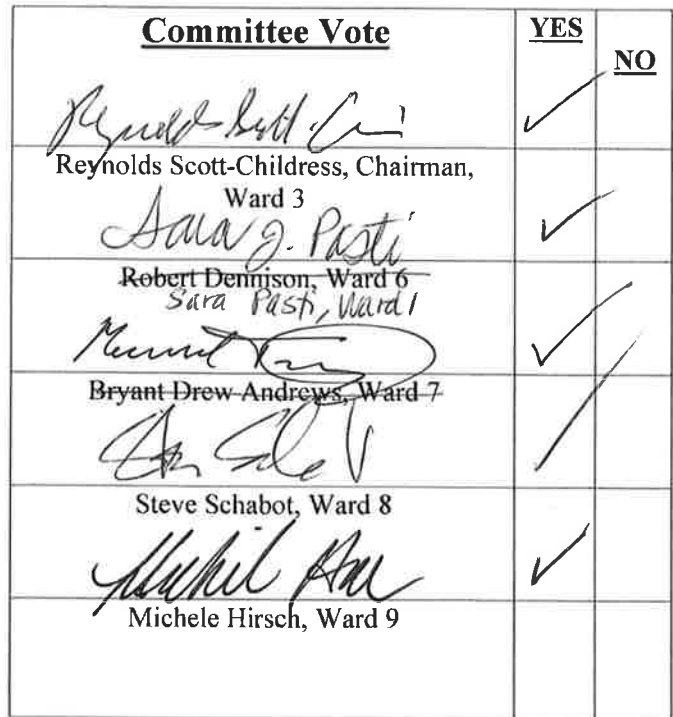 Committee Vote YES NO
Reynolds Scott-Childress, Chairman,
Ward 3
Sara J. Pasti
Robert Dennison, Ward 6
Sara Pasti, Ward 1
Bryant Drew Andrews, Ward 7
Steve Schabot, Ward 8
Michele Hirsch, Ward 9